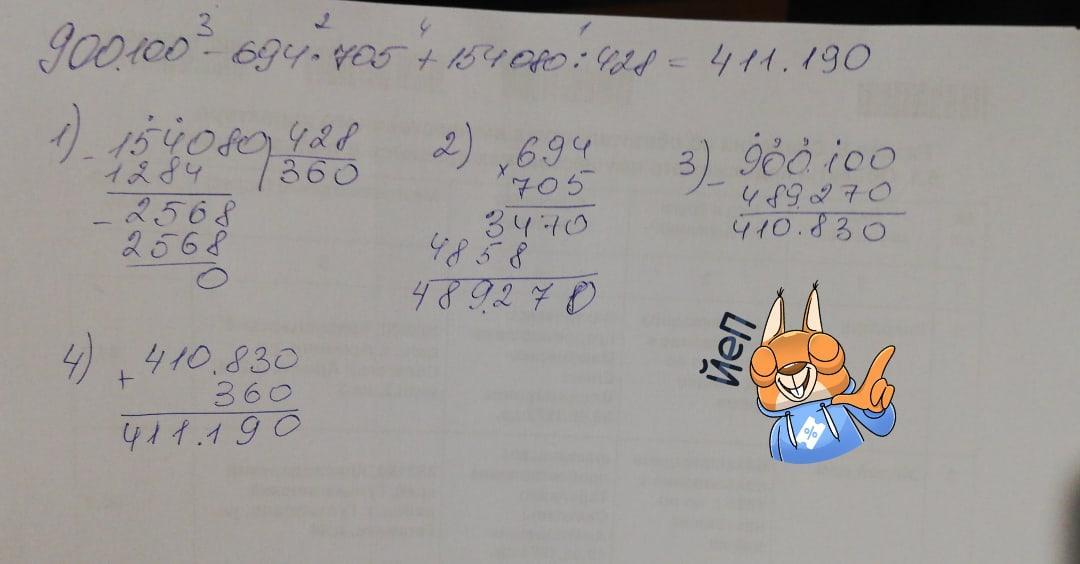 3 2 4 1
900.100 - 694 · 705 + 154080 : 428 = 411.190
1) - 154080 | 428
1284 | 360
- 2568
2568
0
2) × 694
705
3470
4858
489.270
3) - 900.100
489.270
410.830
4) + 410.830
360
411.190
йеп
%